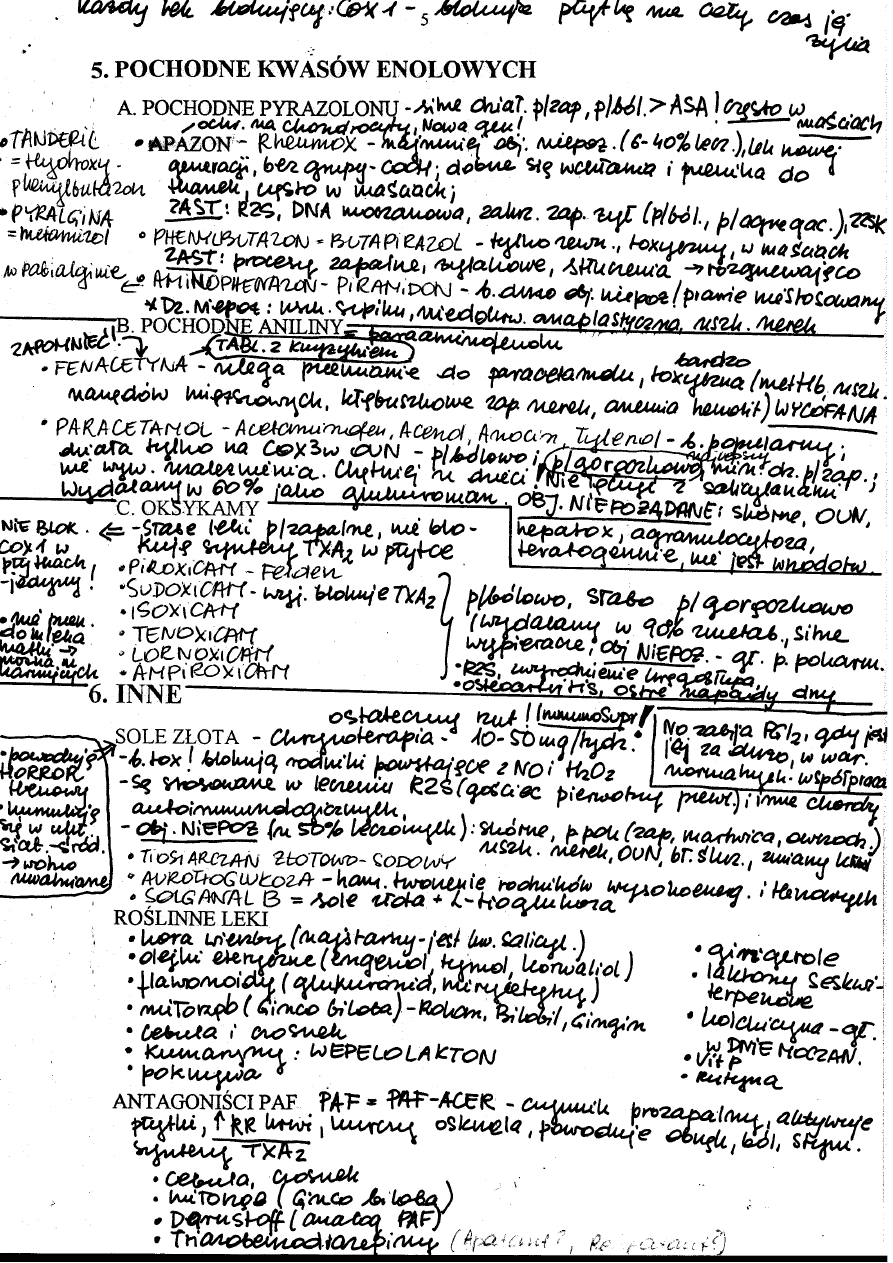 każdy lek blokujący: COX 1 - blokuje płytkę na cały czas jej życia
5
5. POCHODNE KWASÓW ENOLOWYCH
A. POCHODNE PYRAZOLONU - silne dział. p/zap, p/ból. > ASA! często w maściach
ochr. na chondrocyty, Nowa gen!
• APAZON - Rheumox - najmniej obj. niepoż. (6-40% lecz.), lek nowej
generacji, bez grupy -COOH; dobrze się wchłania i przenika do
tkanek, często w maściach;
ZAST: RZS, DNA moczanowa, zakrz. zap. żył (p/ból., p/agregac.), ZZSK
• TANDERIL
= Hydroxy-
phenylbutazon
• PYRALGINA
= metamizol
w Pabialginie
• PHENYLBUTAZON = BUTAPIRAZOL - tylko zewn., toksyczny, w maściach
ZAST: procesy zapalne, stłuczenia → rozgrzewająco
• AMINOPHENAZON - PIRAMIDON - b. dużo obj. niepoż / prawie niestosowany
* Dz. niepoż: uszk. szpiku, niedokrw. anaplastyczna, uszk. nerek
B. POCHODNE ANILINY = paraaminofenolu
ZAPOMNIEĆ!
TABL. z Krzyżykiem
• FENACETYNA - ulega przemianie do paracetamolu, bardzo toxyczna (metHb, uszk.
narządów miąższowych, kłębuszkowe zap. nerek, anemia hemolit) WYCOFANA
• PARACETAMOL - Acetaminofen, Acenol, Anocin, Tylenol - b. popularny;
działa tylko na COX3 w OUN - p/bólowo i p/gorączkowo, min. dz. p/zap.;
najlepszy
nie wyw. uzależnienia. Chętniej u dzieci! Nie łączyć z salicylanami
wydalany w 60% jako glukuronian. OBJ. NIEPOŻĄDANE: skórne, OUN,
hepatox, agranulocytoza,
teratogennie, nie jest wrzodotw.
C. OKSYKAMY
NIE BLOK.
COX1 w
płytkach
- jedyny!
⇐ - Stare leki p/zapalne, nie blo-
kują syntezy TXA2 w płytce
• PIROXICAM - Felden
• SUDOXICAM - wyj. blokuje TXA2
• ISOXICAM
• TENOXICAM
• LORNOXICAM
• AMPIROXICAM
• nie przen.
do mleka
matki →
można u
karmiących
p/bólowo, słabo p/gorączkowo
(wydalany w 90% zmetab., silnie
wypierane; obj NIEPOŻ. - gł. p. pokarm.
• RZS, zwyrodnienie kręgosłupa,
• osteoarthritis, ostre napady dny
6. INNE
ostateczny rzut! ImmunoSupr!
SOLE ZŁOTA - Chryzoterapia - 10-50 mg/tydz.
NO zabija PGI2, gdy jest
jej za dużo, w war.
normalnych - współpraca
- b. tox! blokują rodniki powstające z NO i H2O2
- Są stosowane w leczeniu RZS (gościec pierwotny przewl.) i inne choroby
autoimmunologicznych,
- Obj. NIEPOŻ (u 50% leczonych): skórne, p. pok (zap, martwica, owrzodz.)
uszk. nerek, OUN, bł. śluz., zmiany krwi
• powodują
HORROR
tlenowy
• kumulują
się w ukł.
siat.-śród.
→ wolno
uwalniane
• TIOSIARCZAN ZŁOTOWO-SODOWY
• AUROTIOGLUKOZA - ham. tworzenie rodników wysokoenerg. i tlenowych
• SOLGANAL B = sole złota + L-tioglukoza
ROŚLINNE LEKI
• kora wierzby (najstarszy - jest kw. salicyl.)
• olejki eteryczne (eugenol, tymol, korwaliol)
• flawonoidy (glukuronid, mirycetyny)
• miłorząb (Ginco biloba) - Rokan, Bilobil, Gingin
• cebula i czosnek
• kumaryny: WEPELOLAKTON
• pokrzywa
• gingerole
• laktony seskwi-
terpenowe
• kolchicyna - gł.
w DNIE MOCZAN.
• Vit P
• Rutyna
ANTAGONIŚCI PAF PAF = PAF-ACER - czynnik prozapalny, aktywuje
płytki, ↑ RR krwi, kurczy oskrzela, powoduje obrzęk, ból, stym.
syntezy TXA2
• cebula, czosnek
• miłorząb (Ginco biloba)
• Dernstoff (analog PAF)
• Triazobenzodiazepiny